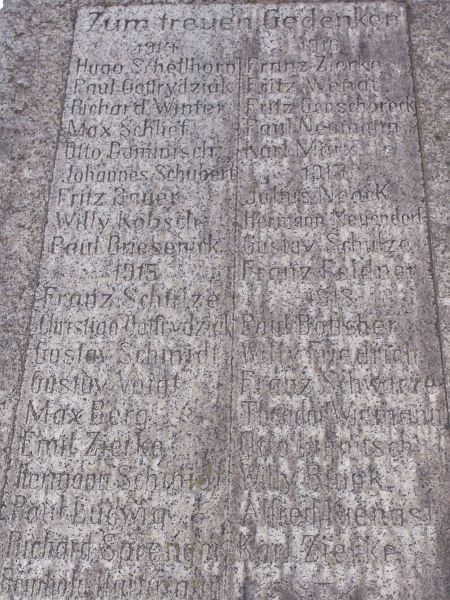 Zum treuen Gedenken
1914
Hugo Schellhorn
Paul Gottrydziak
Richard Winter
Max Schlief
Otto Dominisch
Johannes Schubert
Fritz Bauer
Willy Kobsch
Paul Briesenick
1915
Franz Schulze
Christian Gottrydziak
Gustav Schmidt
Gustav Voigt
Max Berg
Emil Zierke
Hermann Schmidt
Paul Ludwig
Richard Sprenger
1916
Franz Zierke
Fritz Wendt
Fritz
Paul Neumann
Karl Marx
1917
Julius Noack
Hermann Meuendorf
Gustav Schulze
Franz Feldner
1918
Paul Böttcher
Willy Friedrich
Franz Schwarze
Theodor Wiemann
Otto
Willy
Alfred Kiengast
Karl Zierke